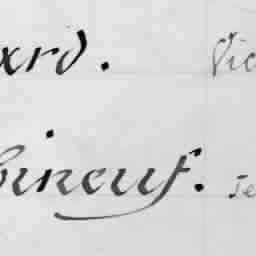 xrd. Vic
bineuf. Je